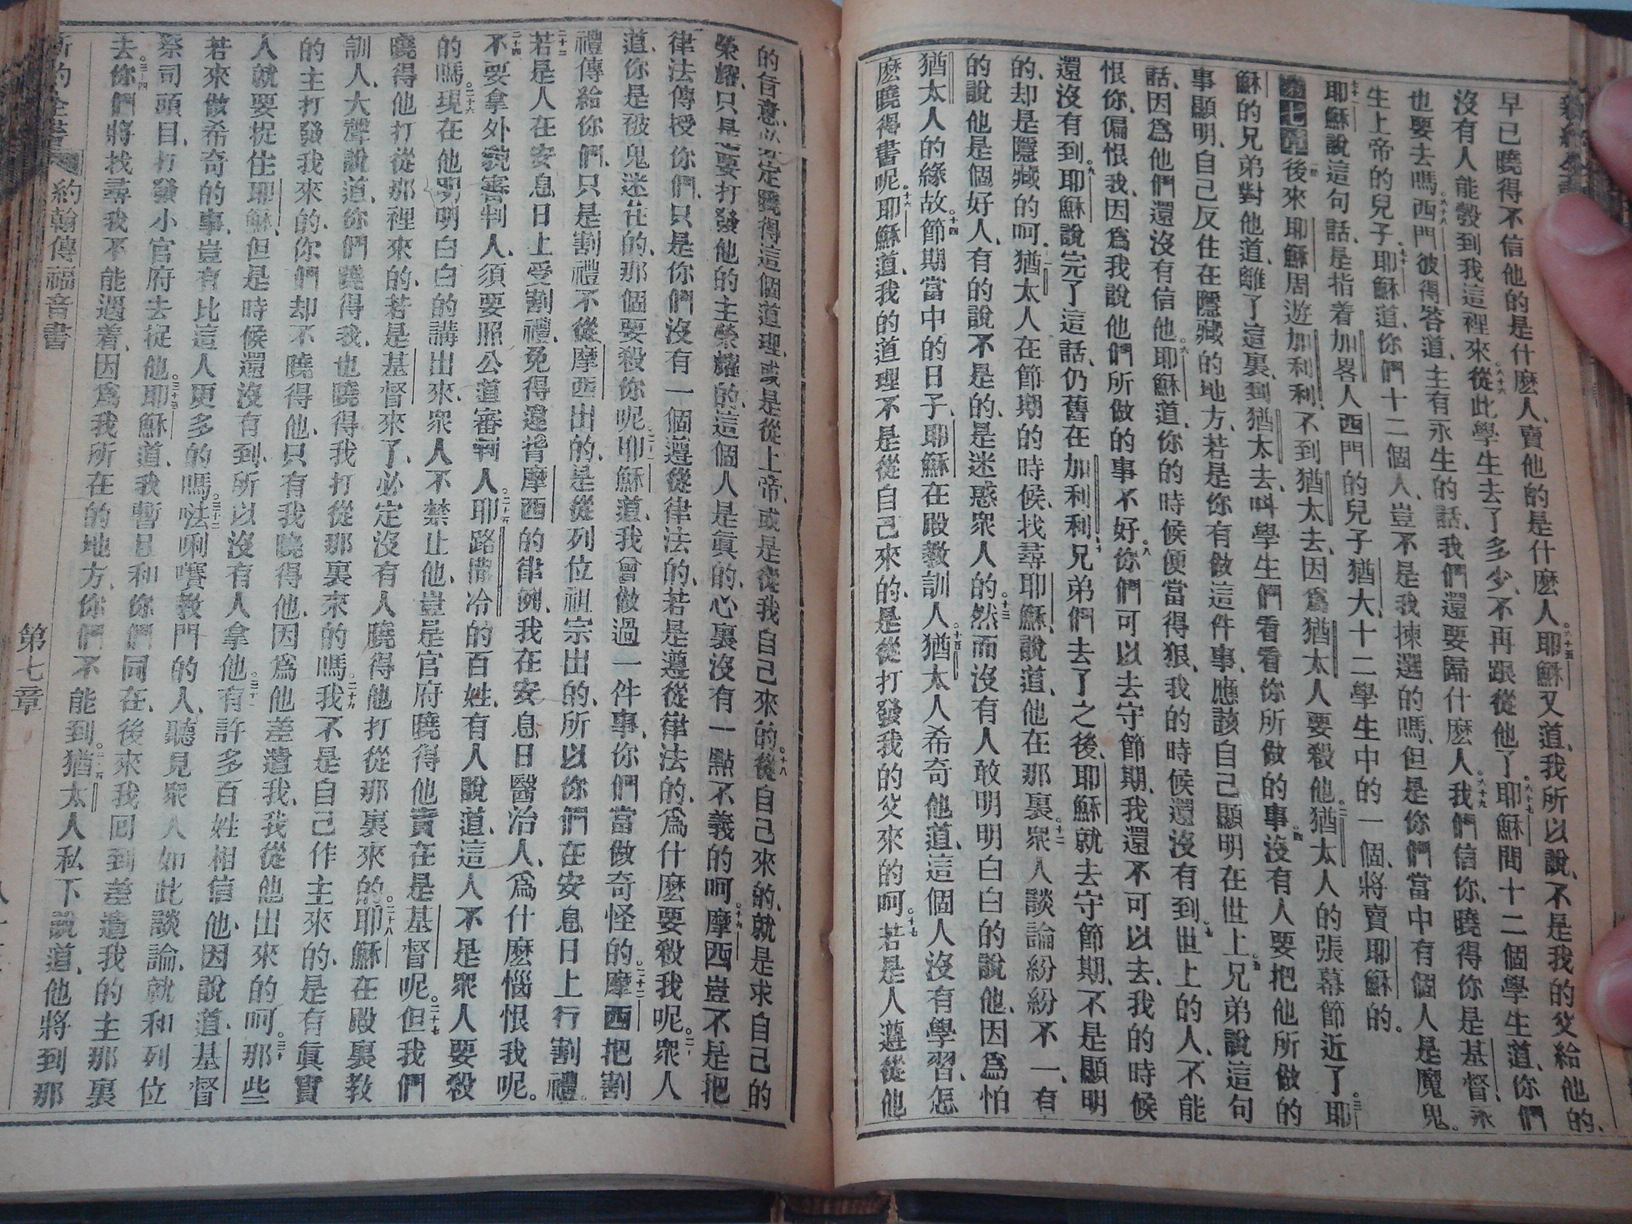 早已曉得不信他的是什麽人、賣他的是什麽人。六十五耶穌又道、我所以說、不是我的父給他的、
沒有人能彀到我這裡來。六十六從此學生去了多少、不再跟從他了。六十七耶穌問十二個學生道、你們
也要去嗎。六十八西門彼得答道、主有永生的話、我們還要歸什麽人。六十九我們信你、曉得你是基督、永
生上帝的兒子。七十耶穌道、你們十二個人、豈不是我揀選的嗎、但是你們當中有個人是魔鬼。
七十一耶穌說這句話、是指着加畧人西門的兒子猶大、十二學生中的一個、將賣耶穌的。
第七章後來耶穌周遊加利利、不到猶太去、因爲猶太人要殺他。二猶太人的張幕節近了。三耶
穌的兄弟對他道、離了這裏、到猶太去、呌學生們看看你所做的事。四沒有人要把他所做的
事顯明、自己反住在隱藏的地方、若是你有做這件事、應該自己顯明在世上。五兄弟說這句
話、因爲他們還沒有信他。六耶穌道、你的時候便當得狠、我的時候還沒有到。七世上的人、不能
恨你、偏恨我、因爲我說他們所做的事不好。八你們可以去守節期、我還不可以去、我的時候
還沒有到。九耶穌說完了這話、仍舊在加利利。十兄弟們去了之後、耶穌就去守節期、不是顯明
的、却是隱藏的呵。十一猶太人在節期的時候、找尋耶穌、說道、他在那裏。十二衆人談論紛紛不一、有
的說他是個好人、有的說不是的、是迷惑衆人的。十三然而沒有人敢明明白白的說他、因爲怕
猶太人的緣故。十四節期當中的日子、耶穌在殿教訓人。十五猶太人希奇他道、這個人沒有學習、怎
麽曉得書呢。十六耶穌道、我的道理不是從自己來的、是從打發我的父來的呵。十七若是人遵從他
的旨意、必定曉得這個道理、或是從上帝、或是從我自己來的。十八從自己來的、就是求自己的
榮耀、只是要打發他的主榮耀的、這個人是眞的、心裏沒有一點不義的呵。十九摩西豈不是把
律法傳授你們、只是你們沒有一個遵從律法的、若是遵從律法的、爲什麽要殺我呢。二十衆人
道、你是被鬼迷住的、那個要殺你呢。二十一耶穌道、我曾做過一件事、你們當做奇怪的。二十二摩西把割
禮傳給你們、只是割禮不從摩西出的、是從列位祖宗出的、所以你們在安息日上行割禮。
二十三若是人在安息日上受割禮、免得違背摩西的律例、我在安息日醫治人、爲什麽惱恨我呢。
二十四不要拿外貌審判人、須要照公道審判人。二十五耶路撒冷的百姓、有人說道、這人不是衆人要殺
的嗎。二十六現在他明明白白的講出來、衆人不禁止他、豈是官府曉得他實在是基督呢。二十七但我們
曉得他打從那裡來的、若是基督來了、必定沒有人曉得他打從那裏來的。二十八耶穌在殿裏教
訓人、大聲說道、你們曉得我、也曉得我打從那裏來的嗎。二十九我不是自己作主來的、是有眞實
的主打發我來的、你們却不曉得他、只有我曉得他、因爲他差遣我、我從他出來的呵。三十那些
人就要捉住耶穌、但是時候還沒有到、所以沒有人拿他。三十一有許多百姓相信他、因說道、基督
若來做希奇的事、豈有比這人更多的嗎。三十二㳒唎㘔教門的人、聽見衆人如此談論、就和列位
祭司頭目、打發小官府去捉他。三十三耶穌道、我暫且和你們同在、後來我回到差遣我的主那裏
去。三十四你們將找尋我、不能遇着、因爲我所在的地方、你們不能到。三十五猶太人私下說道、他將到那
新約全書 約翰傳福音書 第七章